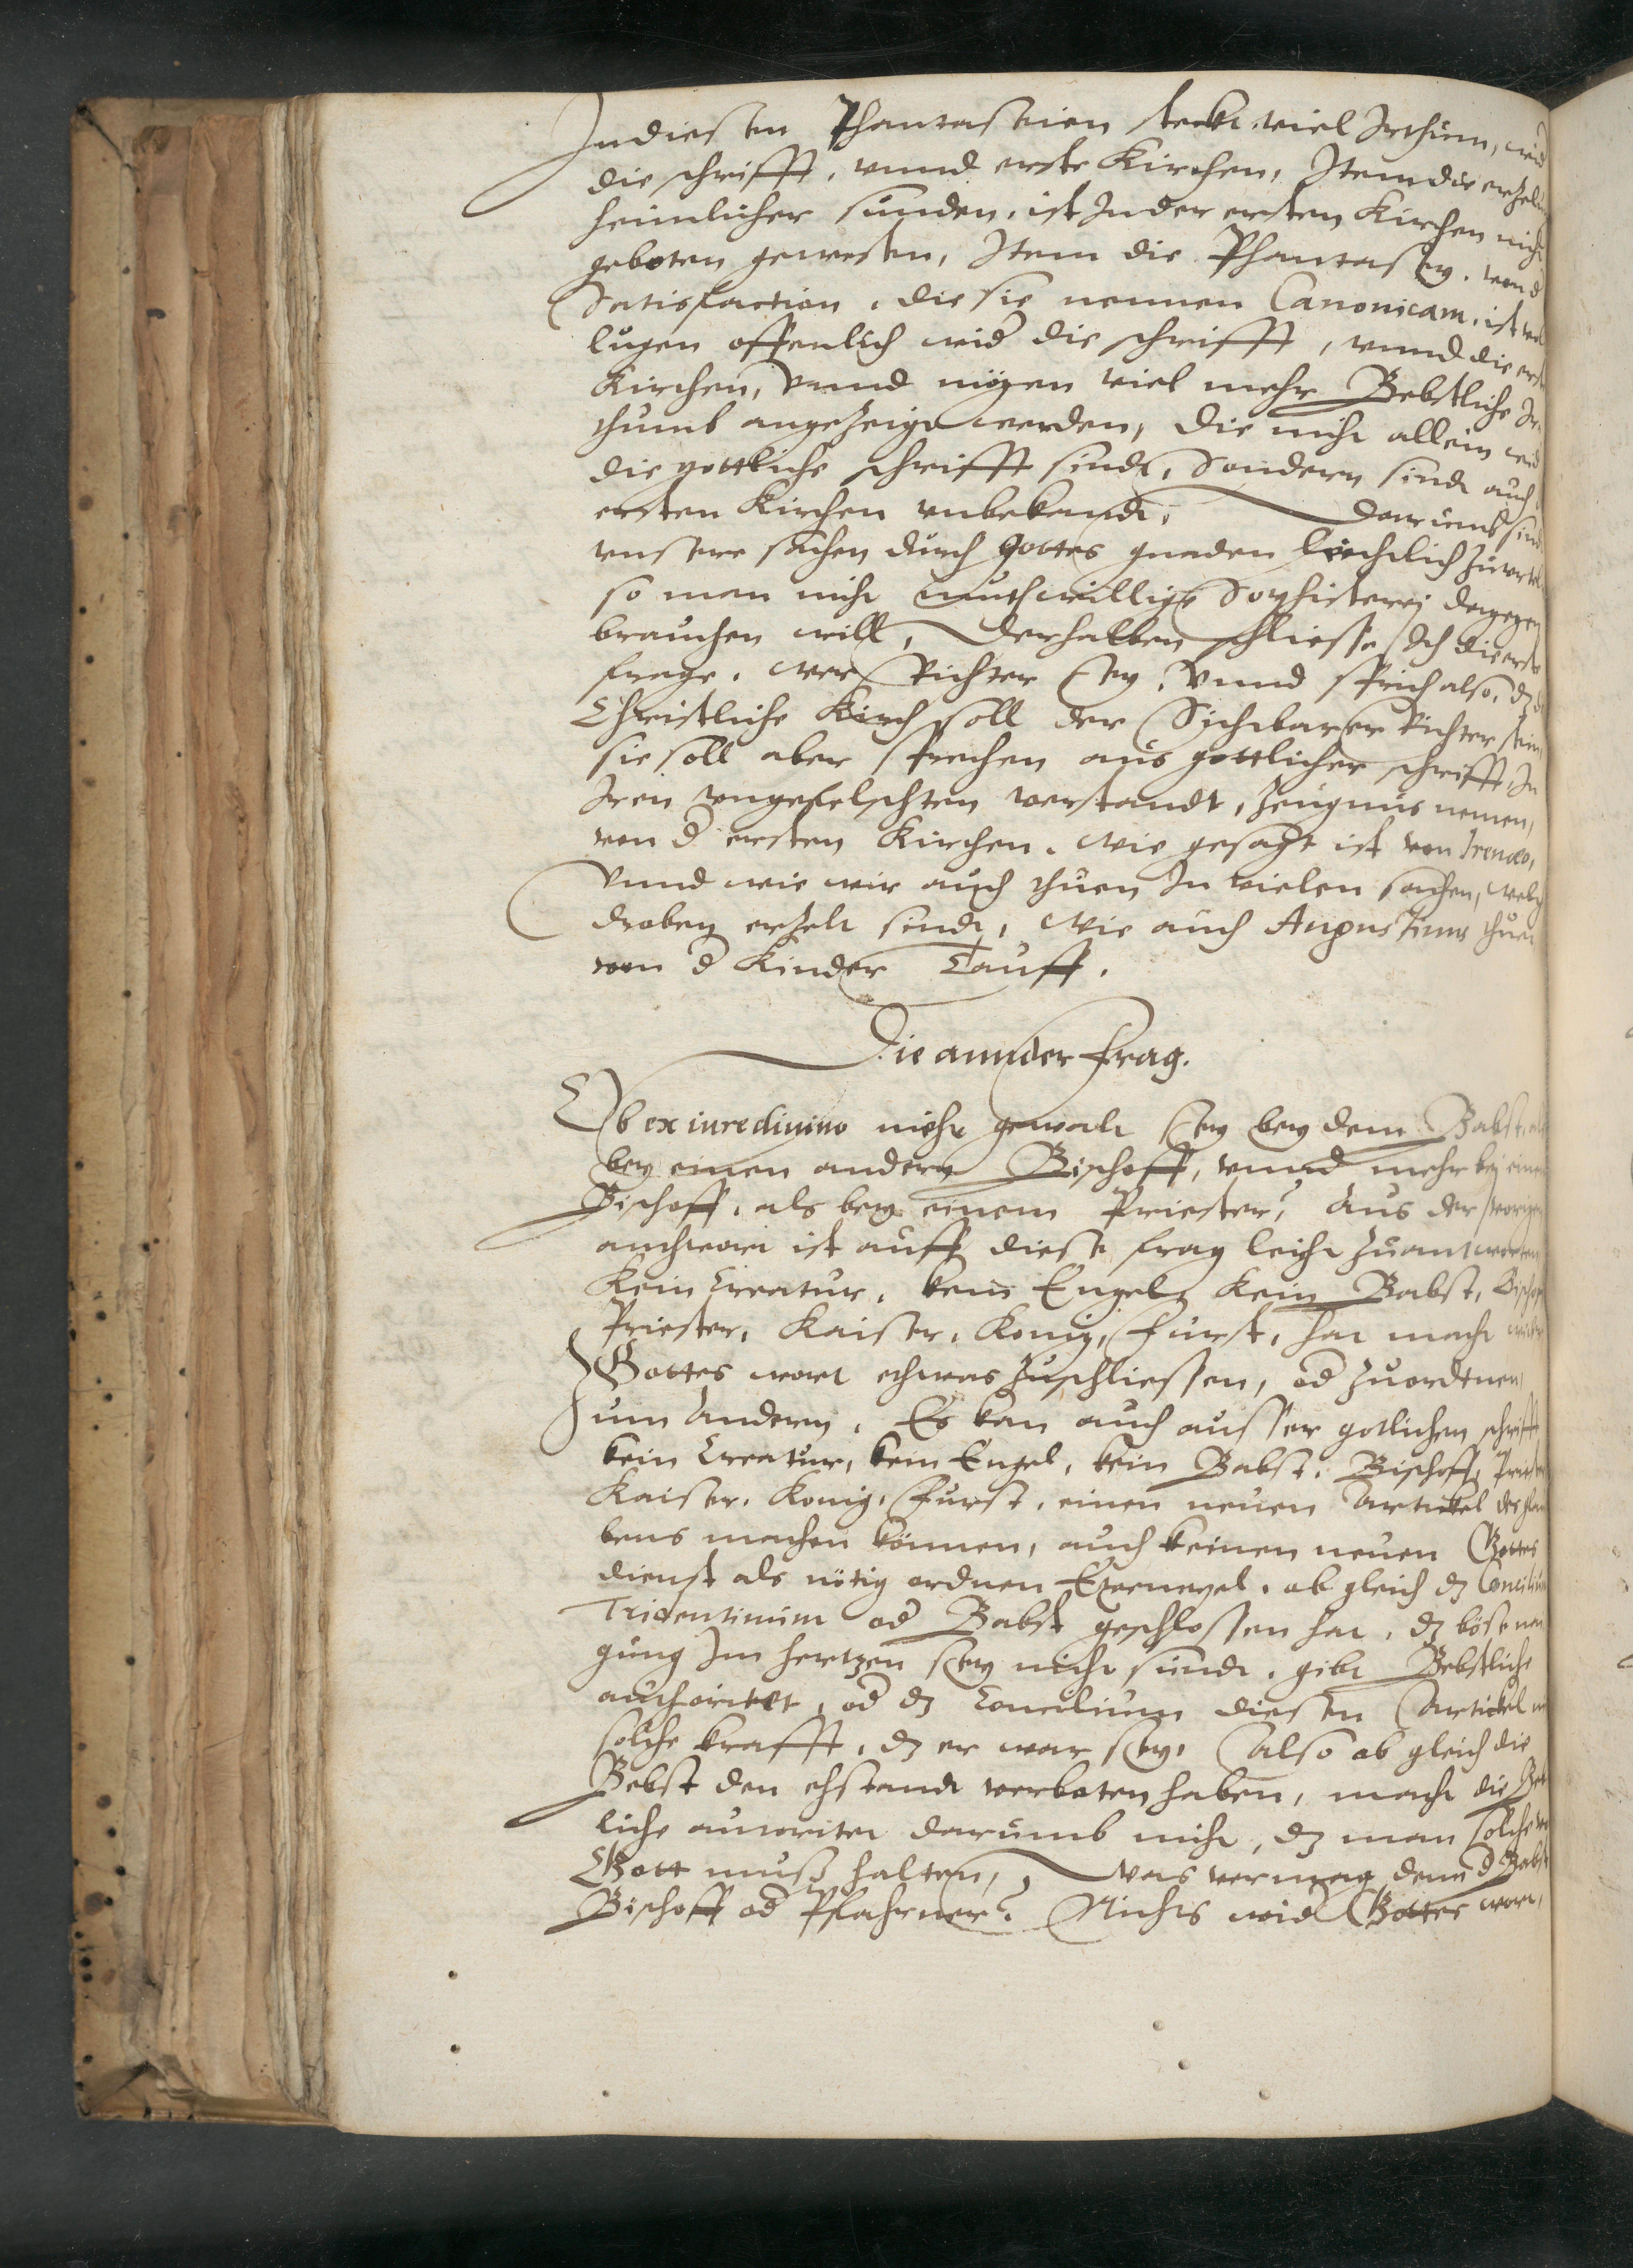 In diesen Phantaseien steckt viel Irthum, wid
die schrifft, vnnd erste Kirchen, Item die erzelung
heimlicher sünden, ist In der ersten Kirchen nicht
geboten gewesen, Item die Phantasey, vonn d
Satisfaction, die sie nennen Canonicam, ist
lugen offenlich wid die schrifft, vnnd die erste
Kirchen, Vnnd mögen viel mehr Bebstliche Ir
thumb angezeigt werden, die nicht allein wid
die gottliche schrifft sindt, Sondern sindt auch
ersten Kirchen vnbekandt, Darumb sindt
vnsere sachen durch Gottes gnaden leichtlich zuvrteiln
so man nicht muthwillige Sophisterej dagegen
brauchen will, Derhalben schliesse Ich die erste
frage, wer Richter sey, Vnnd sprich also, dz di
Christliche Kirch soll der Sichtbarer Richter sein
sie soll aber sprechen aus gottlicher schrifft, In
Iren vngefelschten verstandt, zeugnus nemen,
von d ersten Kirchen, wie gesagt ist von Irenæo,
Vnnd wie wir auch thuen In vielen sachen, welch
droben erzelt sindt, Wie auch Augustinus thuet
von d Kinder Tauff.
Die annder frag.
Ob ex iure diuino mehr gewalt sey bey dem Babst, als
bey einen andern Bischoff, vnnd mehr bej einem
Bischoff, als bey einem Priester? Aus der vorigen
anthwort ist auff diese frag leicht zuantworten
Kein Creatur, kein Engel, Kein Babst, Bischoff
Priester, Kaiser, Konig, Furst, hat macht wider
Gottes wort ethwas zuschliessen, od zuordtnen,
Zum Andern, Es kan auch ausser gotlichen schrifft
kein Creatur, kein Engel, kein Babst, Bischoff, Priester
Kaiser, Konig, Furst, einen neuen Artickel des glau
bens machen können, auch keinen neuen Gottes
dienst als nötig ordnen Exemegel, ob gleich dz Concilium
Tridentinum od Babst geschlossen hat, dz böse nei
gung Im hertzen sey nicht sundt, gibt Bebstliche
authoritet, od dz Concilium diesen Artickel nit
solche krafft, dz er war sey, Also ob gleich die
Bebst den ehstandt verboten haben, macht die Bebst
liche autoritet darumb nicht, dz man solche vor
Gott muß halten, Was vermag denn d Babst
Bischoff od Pfahrner? Nichts wid Gottes wort,